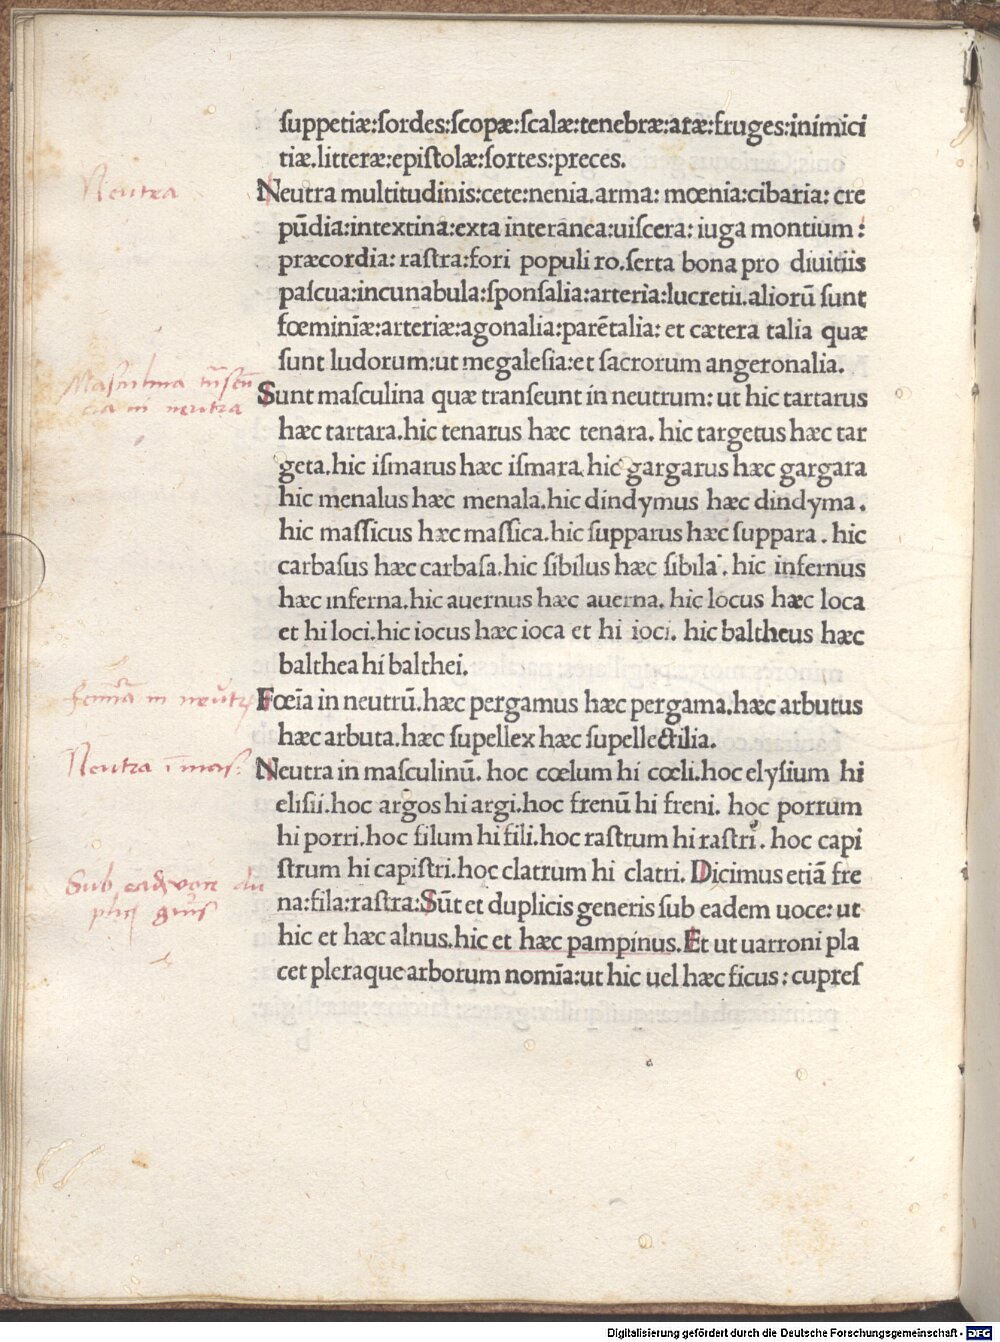 suppetiæ:sordes:scopæ:scalæ:tenebræ:atæ:fruges:inimici
tiæ.litteræ:epistolæ:sortes:preces.
Neutra
Neutra multitudinis:cete:nenia.arma: mœnia:cibaria: cre
pūdia:intextina:exta interanea:uiscera: iuga montium :
præcordia: rastra:fori populi ro.serta bona pro diuitiis
pascua:incunabula:sponsalia:arteria:lucretii.aliorū sunt
fœminiæ:arteriæ:agonalia:parētalia: et cætera talia quæ
sunt ludorum:ut megalesia:et sacrorum angeronalia.
Masculina trāseū
cia in neutra
Sunt masculina quæ transeunt in neutrum: ut hic tartarus
hæc tartara.hic tenarus hæc tenara. hic targetus hæc tar
geta.hic ismarus hæc ismara.hic gargarus hæc gargara
hic menalus hæc menala.hic dindymus hæc dindyma.
hic massicus hæc massica.hic supparus hæc suppara. hic
carbasus hæc carbasa.hic sibilus hæc sibila. hic infernus
hæc inferna.hic auernus hæc auerna. hic locus hæc loca
et hi loci.hic iocus hæc ioca et hi ioci. hic baltheus hæc
balthea hi balthei.
in neutr
Fœīa in neutrū.hæc pergamus hæc pergama.hæc arbutus
hæc arbuta.hæc supellex hæc supellectilia.
Neutra ī mas:
Neutra in masculinū. hoc cœlum hi cœli.hoc elysium hi
elisii.hoc argos hi argi.hoc frenū hi freni. hoc porrum
hi porri.hoc filum hi fili.hoc rastrum hi rastri. hoc capi
strum hi capistri.hoc clatrum hi clatri. Dicimus etiā fre
Sub eadē voce du
plicis gnis
na:fila:rastra:Sūt et duplicis generis sub eadem uoce: ut
hic et hæc alnus.hic et hæc pampinus.Et ut uarroni pla
cet pleraque arborum nomīa:ut hic uel hæc ficus: cupres
Digitalisierung gefördert durch die Deutsche Forschungsgemeinschaft - DFG